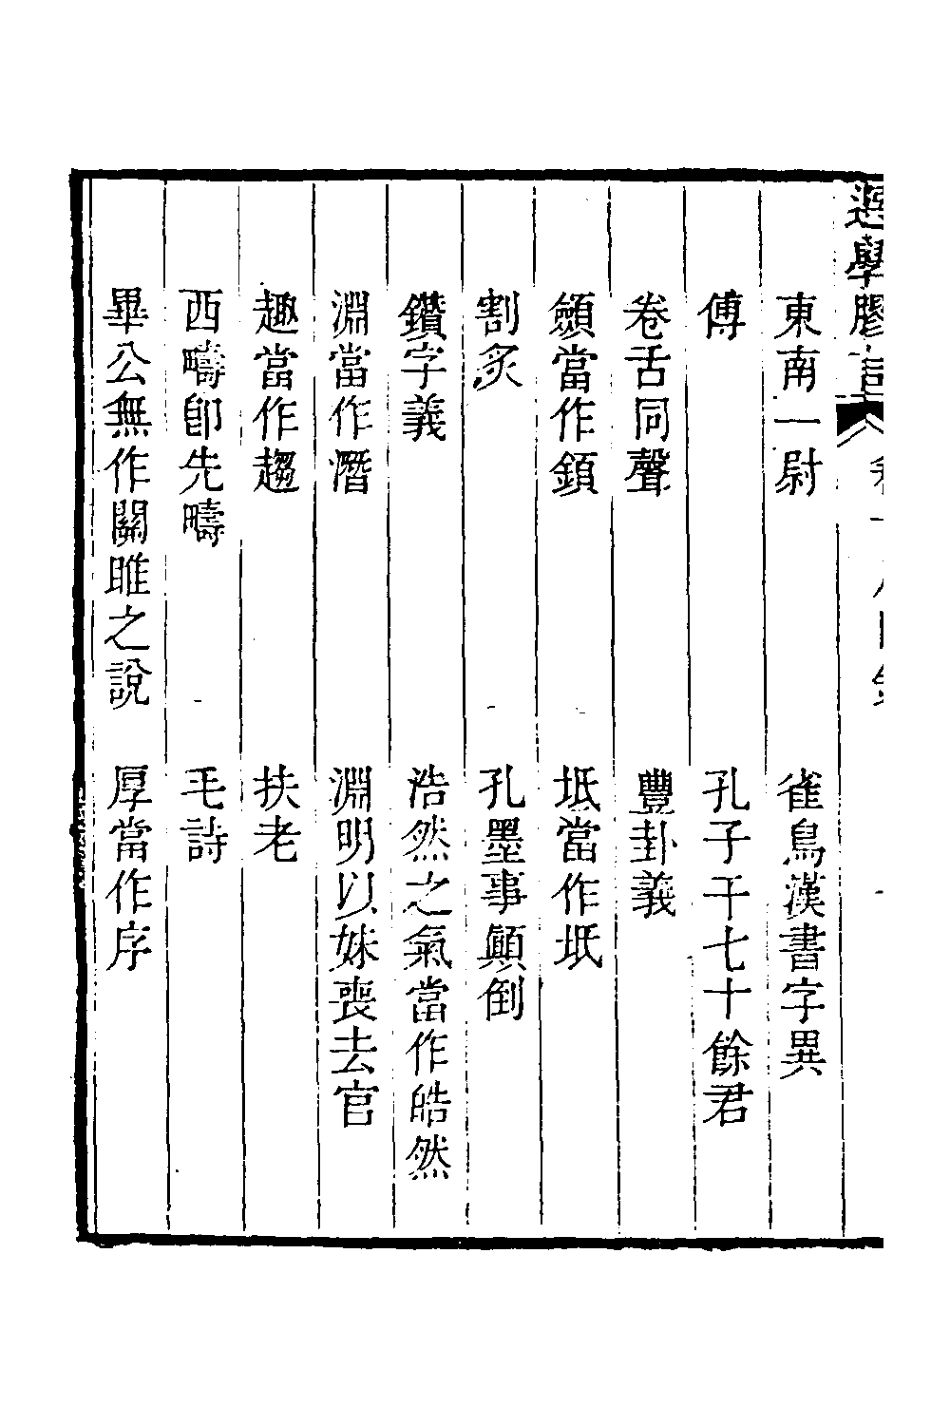 選學膠言
東南一尉　雀鳥漢書字異
傅　孔子干七十餘君
卷舌同聲　豐卦義
纇當作頷　坻當作坁
割炙　孔墨事顚倒
鑽字義　浩然之氣當作皓然
淵當作潛　淵明以妹喪去官
趣當作趨　扶老
西疇卽先疇　毛詩
畢公無作關雎之說　厚當作序